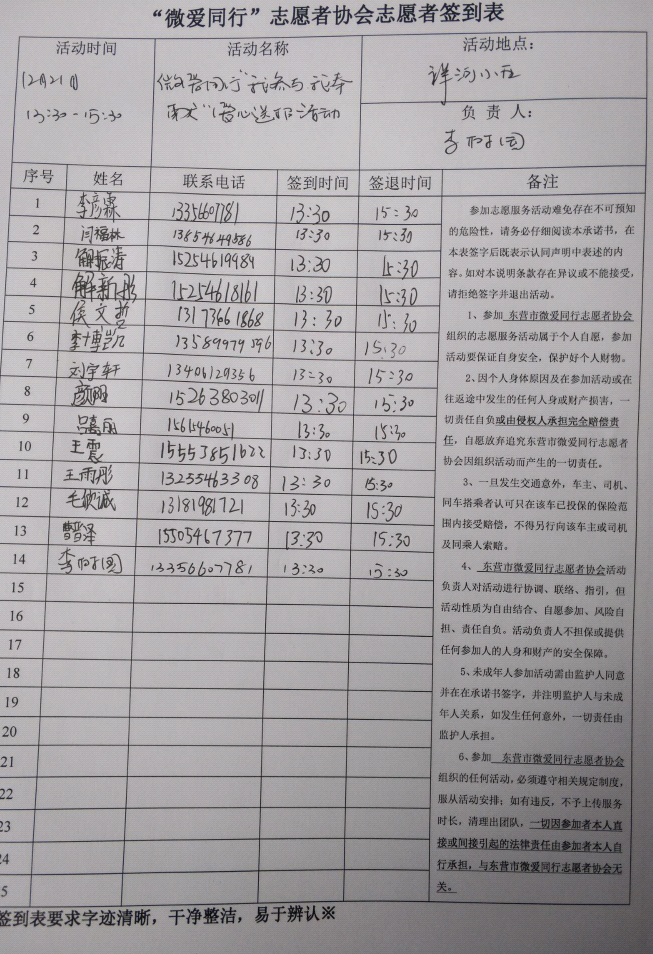 “微爱同行”志愿者协会志愿者签到表
活动时间
12月21日
13:30-15:30
活动名称
微爱同行
爱心送 活动
活动地点：
小区
负责人：
李 园
序号 姓名 联系电话 签到时间 签退时间 备注
1 李彦霖 13356607781 13:30 15:30
2 闫福林 13854649586 13:30 15:30
3 解振涛 15254619989 13:30 15:30
4 解新彤 15254618161 13:30 15:30
5 侯文哲 13173661868 13:30 15:30
6 李博凯 13589979596 13:30 15:30
7 刘宇轩 13406129356 13:30 15:30
8 颜 15263803011 13:30 15:30
9 吕嘉丽 15615460051 13:30 15:30
10 王震 15553851622 13:30 15:30
11 王雨彤 13255463308 13:30 15:30
12 毛欣诚 13181981721 13:30 15:30
13 曹 15505467377 13:30 15:30
14 李 园 13356607781 13:30 15:30
15
16
17
18
19
20
21
22
23
24
5
参加志愿服务活动难免存在不可预知
的危险性，请务必仔细阅读本承诺书，在
本表签字后既表示认同声明中表述的内
容。如对本说明条款存在异议或不能接受，
请拒绝签字并退出活动。
1、参加 东营市微爱同行志愿者协会
组织的志愿服务活动属于个人自愿，参加
活动要保证自身安全，保护好个人财物。
2、因个人身体原因及在参加活动或在
往返途中发生的任何人身或财产损害，一
切责任自负或由侵权人承担完全赔偿责
任，自愿放弃追究东营市微爱同行志愿者
协会因组织活动而产生的一切责任。
3、一旦发生交通意外，车主、司机、
同车搭乘者认可只在该车已投保的保险范
围内接受赔偿，不得另行向该车主或司机
及同乘人索赔。
4、 东营市微爱同行志愿者协会活动
负责人对活动进行协调、联络、指引，但
活动性质为自由结合、自愿参加、风险自
担、责任自负。活动负责人不担保或提供
任何参加人的人身和财产的安全保障。
5、未成年人参加活动需由监护人同意
并在在承诺书签字，并注明监护人与未成
年人关系，如发生任何意外，一切责任由
监护人承担。
6、参加 东营市微爱同行志愿者协会
组织的任何活动，必须遵守相关规定制度，
服从活动安排；如有违反，不予上传服务
时长，清理出团队，一切因参加者本人直
接或间接引起的法律责任由参加者本人自
行承担，与东营市微爱同行志愿者协会无
关。
签到表要求字迹清晰，干净整洁，易于辨认※